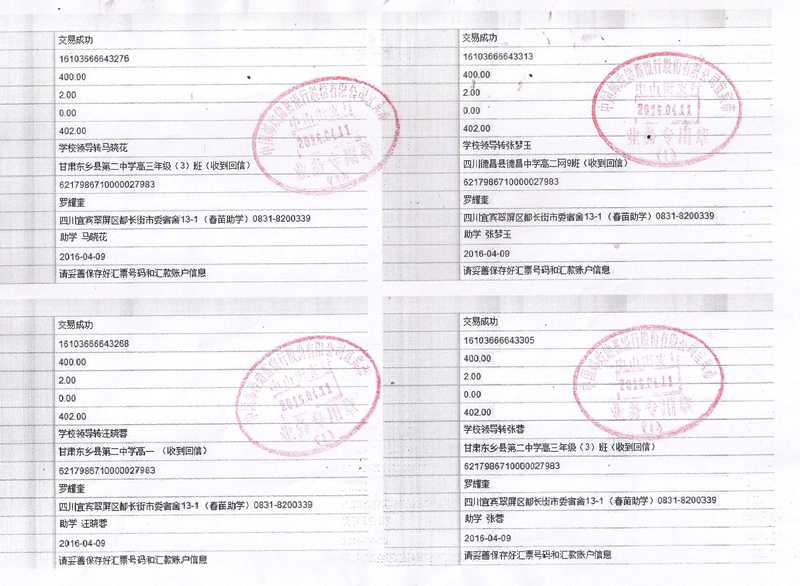 交易成功
16103666643276
400.00
2.00
0.00
402.00
学校领导转马晓花
甘肃东乡县第二中学高三年级（3）班（收到回信）
6217986710000027983
罗耀奎
四川宜宾翠屏区都长街市委宿舍13-1（春苗助学）0831-8200339
助学 马晓花
2016-04-09
请妥善保存好汇票号码和汇款账户信息
2016.04.11
交易成功
16103666643313
400.00
2.00
0.00
402.00
学校领导转张梦玉
四川德昌县德昌中学高二网9班（收到回信）
6217986710000027983
罗耀奎
四川宜宾翠屏区都长街市委宿舍13-1（春苗助学）0831-8200339
助学 张梦玉
2016-04-09
请妥善保存好汇票号码和汇款账户信息
2016.04.11
业务专用章
(1)
交易成功
16103666643268
400.00
2.00
0.00
402.00
学校领导转汪晓蓉
甘肃东乡县第二中学高一 （收到回信）
6217986710000027983
罗耀奎
四川宜宾翠屏区都长街市委宿舍13-1（春苗助学）0831-8200339
助学 汪晓蓉
2016-04-09
请妥善保存好汇票号码和汇款账户信息
2016.04.11
交易成功
16103666643305
400.00
2.00
0.00
402.00
学校领导转张蓉
甘肃东乡县第二中学高三年级（3）班（收到回信）
6217986710000027983
罗耀奎
四川宜宾翠屏区都长街市委宿舍13-1（春苗助学）0831-8200339
助学 张蓉
2016-04-09
请妥善保存好汇票号码和汇款账户信息
2016.04.11
业务专用章
(1)